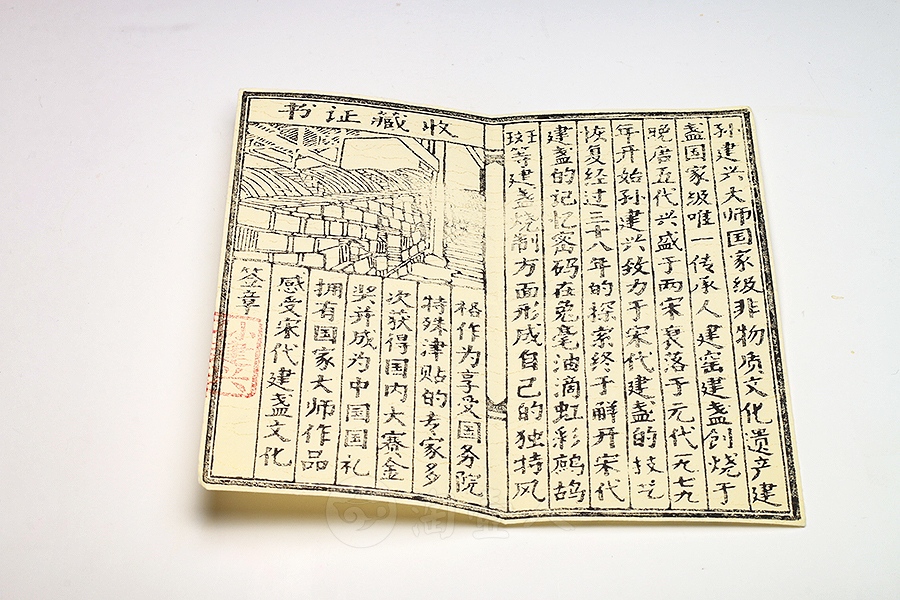 收藏证书
孙建兴大师国家级非物质文化遗产建
盏国家级唯一传承人建窑建盏创烧于
晚唐五代兴盛于两宋衰落于元代一九七九
年开始孙建兴致力于宋代建盏的技艺
恢复经过三十八年的探索终于解开宋代
建盏的记忆密码在兔毫油滴虹彩鹧鸪
斑等建盏烧制方面形成自己的独特风
格作为享受国务院
特殊津贴的专家多
次获得国内大赛金
奖并成为中国国礼
拥有国家大师作品
感受宋代建盏文化
签章